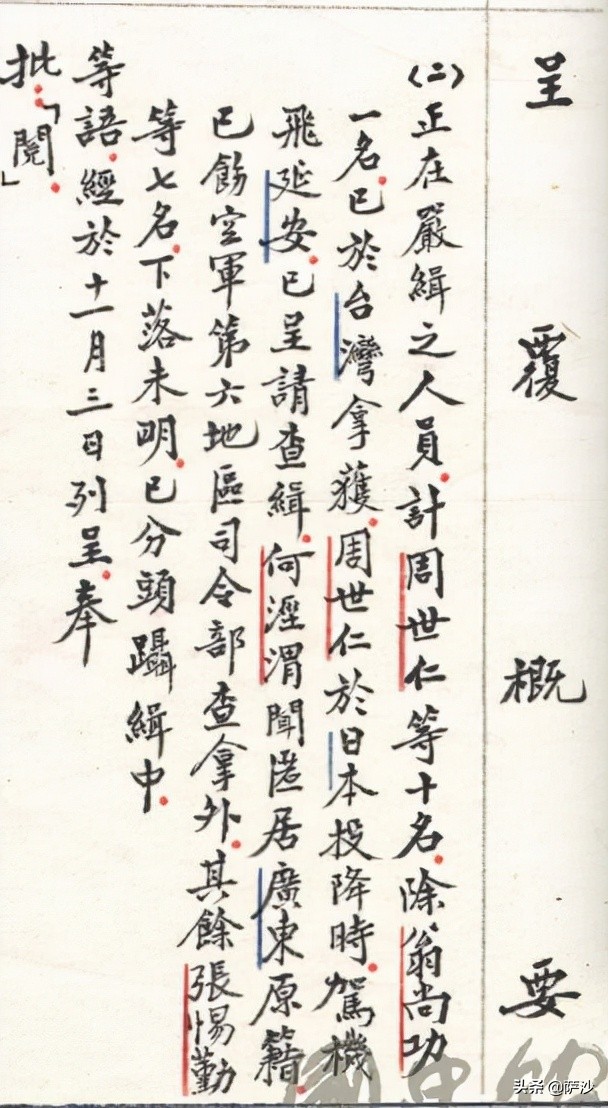 呈覆概要
(二)正在嚴緝之人員.計周世仁等十名.除翁尚功
一名.已於台灣拿獲.周世仁於日本投降時.駕機
飛延安.已呈請查緝.何溼渭聞匿居廣東原籍.
已飭空軍第六地區司令部查拿外.其餘張惕勤
等七名.下落未明.已分頭躡緝中.
等語.經於十一月三日列呈.奉
批.「閱.」
头条 @萨沙